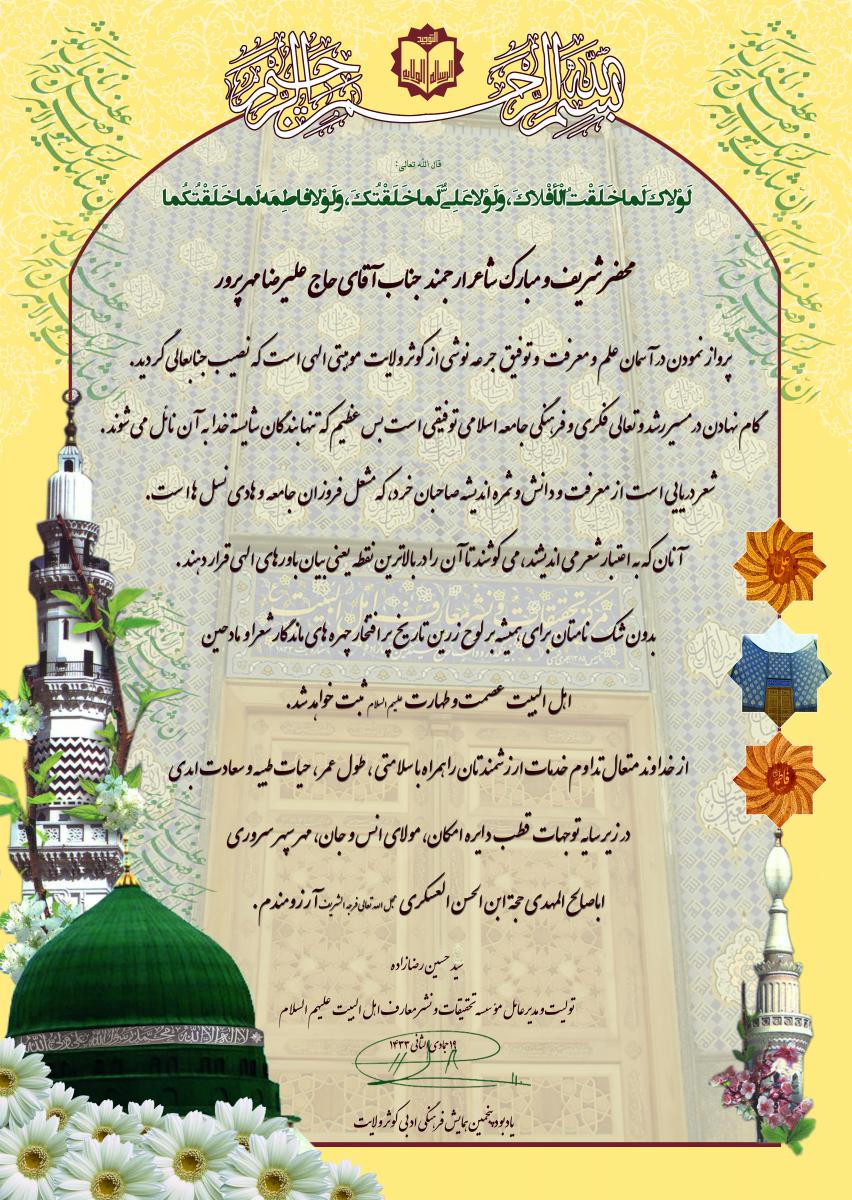 بسم الله الرحمن الرحیم
التوحید
الرسالة الولایة
قال الله تعالی:
لَوْلاكَ لَما خَلَقْتُ الْأَفْلاكَ، وَلَوْلا عَلِيٌّ لَما خَلَقْتُكَ، وَلَوْلا فاطِمَه لَما خَلَقْتُكُما
محضر شریف و مبارک شاعر ارجمند جناب آقای حاج علیرضا مهرپرور
پرواز نمودن در آسمان علم و معرفت و توفیق جرعه نوشی از کوثر ولایت موهبتی الهی است که نصیب جنابعالی گردید.
گام نهادن در مسیر رشد و تعالی فکری و فرهنگی جامعه اسلامی توفیقی است بس عظیم که تنها بندگان شایسته خدا به آن نائل می شوند.
شعر دریایی است از معرفت و دانش و ثمره اندیشه صاحبان خرد، که مشعل فروزان جامعه و هادی نسل ها است.
آنان که به اعتبار شعر می اندیشند، می کوشند تا آن را در بالاترین نقطه یعنی بیان باورهای الهی قرار دهند.
بدون شک نامتان برای همیشه بر لوح زرین تاریخ پر افتخار چهره های ماندگار شعرا و مادحین
اهل البیت عصمت و طهارت علیهم السلام ثبت خواهد شد.
از خداوند متعال تداوم خدمات ارزشمندتان را همراه با سلامتی، طول عمر، حیات طیبه و سعادت ابدی
در زیر سایه توجهات قطب دایره امکان، مولای انس و جان، مهر سپهر سروری
اباصالح المهدی حجة ابن الحسن العسکری عجل الله تعالی فرجه الشریف آرزومندم.
سید حسین رضازاده
تولیت و مدیر عامل مؤسسه تحقیقات و نشر معارف اهل البیت علیهم السلام
۱۹ جمادی الثانی ۱۴۳۳
یادبود پنجمین همایش فرهنگی ادبی کوثر ولایت
علی
فاطمة
مرکز تحقیقات و نشر معارف اهل البیت